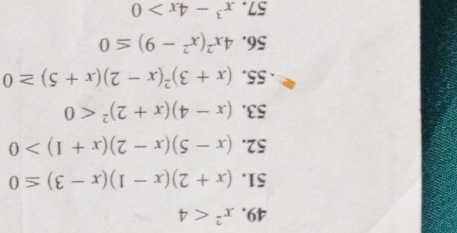 49. x² < 4
51. (x + 2)(x − 1)(x − 3) ≤ 0
52. (x − 5)(x − 2)(x + 1) > 0
53. (x − 4)(x + 2)² < 0
55. (x + 3)²(x − 2)(x + 5) ≥ 0
56. 4x²(x² − 9) ≤ 0
57. x³ − 4x > 0